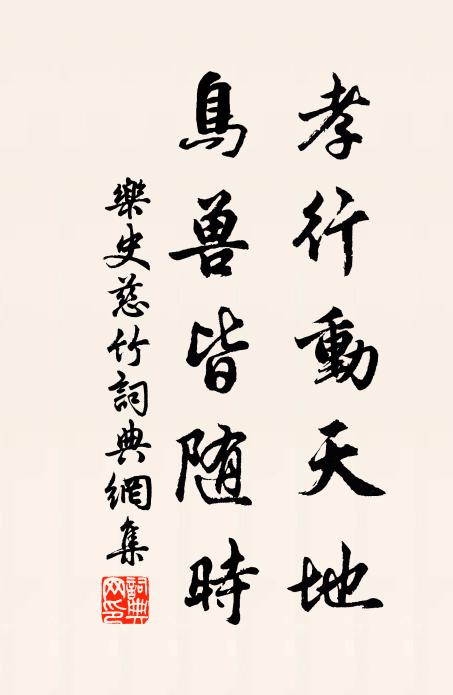 孝行動天地
鳥兽皆随時
樂史慈竹詞典網集
詞典網印